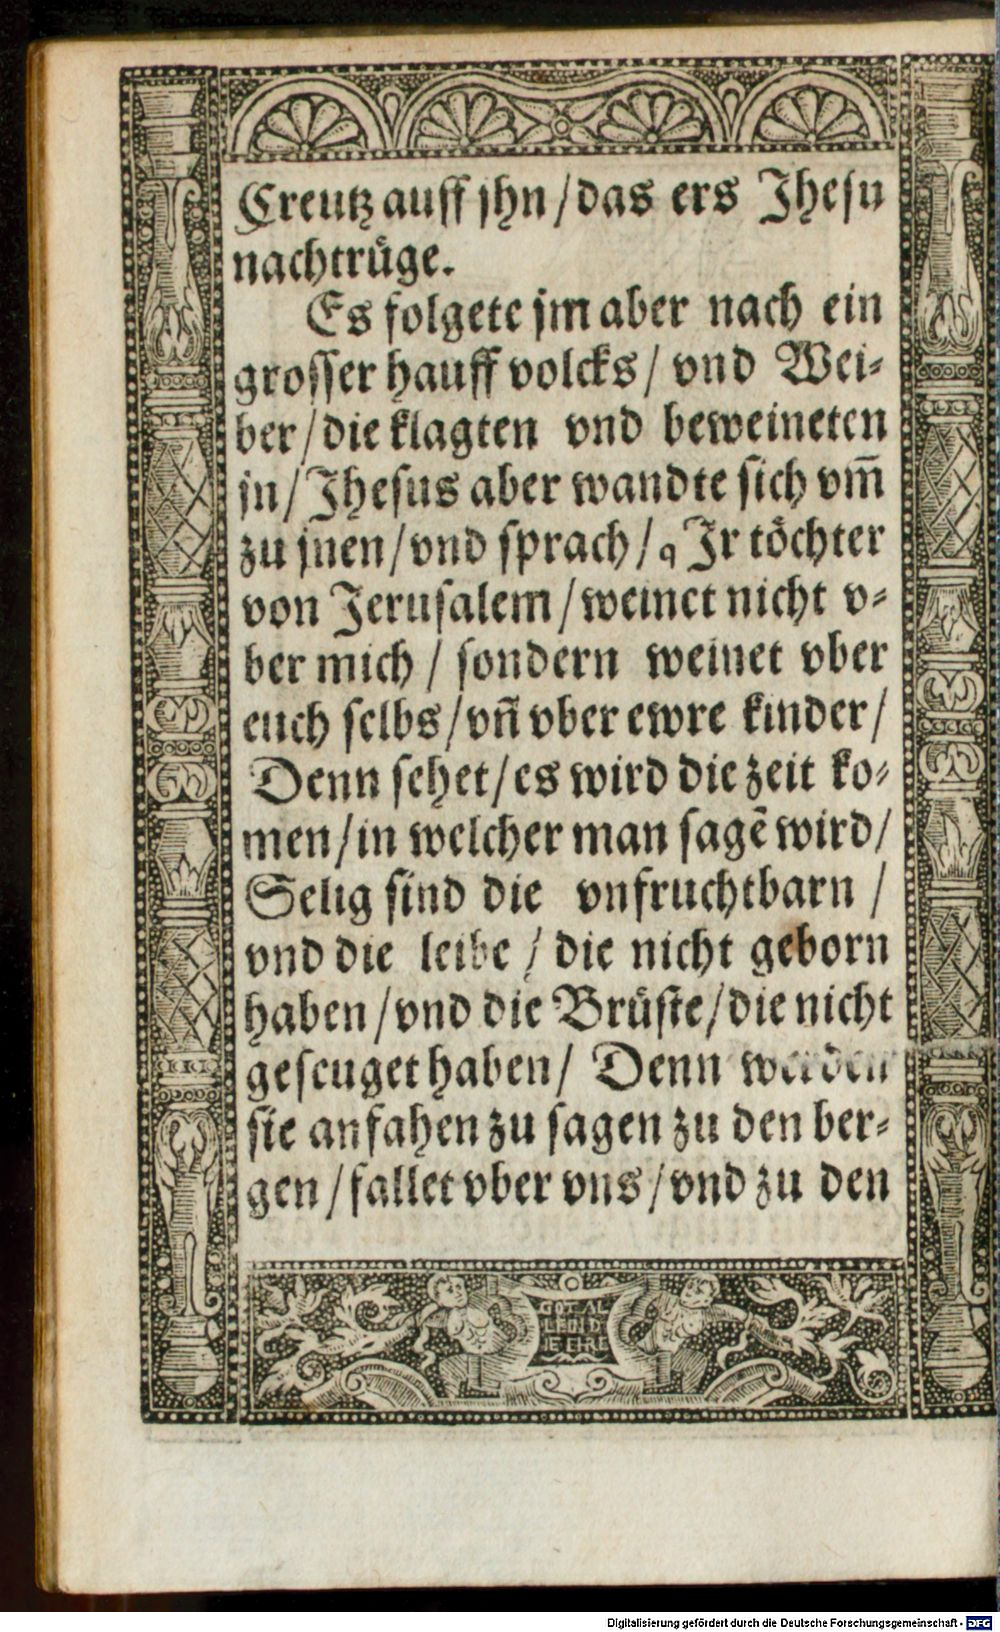 Creutz auff jhn/das ers Jhesu
nachtrüge.
Es folgete jm aber nach ein
grosser hauff volcks/ vnd Wei-
ber/die klagten vnd beweineten
jn/Jhesus aber wandte sich vm̄
zu jnen/vnd sprach/ Jr töchter
von Jerusalem/weinet nicht v-
ber mich / sondern weinet vber
euch selbs/vn̄ vber ewre kinder/
Denn sehet/es wird die zeit ko-
men/in welcher man sagē wird/
Selig sind die vnfruchtbarn /
vnd die leibe / die nicht geborn
haben/vnd die Brüste/die nicht
geseuget haben/ Denn werden
sie anfahen zu sagen zu den ber-
gen/fallet vber vns/vnd zu den
GOT AL
LEIN D
IE EHRE
Digitalisierung gefördert durch die Deutsche Forschungsgemeinschaft - DFG